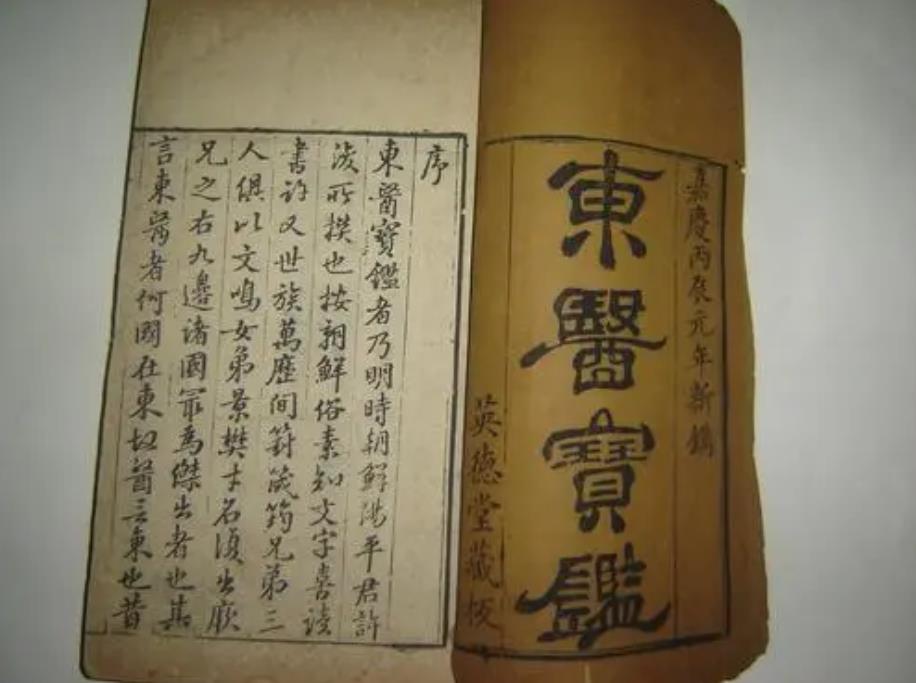 嘉慶丙辰元年新鐫
東醫寶鑑
英德堂藏板
序
東醫寶鑑者乃明時朝鮮陽平君許
浚所撰也按朝鮮俗素知文字喜讀
書許又世族萬歷間篈筬筠兄弟三
人俱以文鳴女弟景樊才名復出厥
兄之右九邊諸國最爲傑出者也其
言東醫者何國在東故醫言東也昔